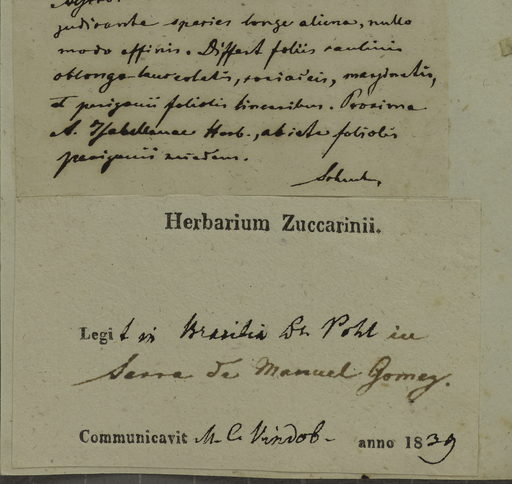 judicante species longe aliena, nullo
modo affinis. Differt foliis caulinis
oblongo lanceolatis, coriaceis, marginatis,
et perigonii foliolis linearibus. Proxima
A. Isabelleanae Herb., ab ista foliolis
perigonii recedens.
Schenk
Herbarium Zuccarinii.
Legit in Brasilia Dr Pohl in
Serra de Manuel Gomez.
Communicavit M. C. Vindob. anno 1839